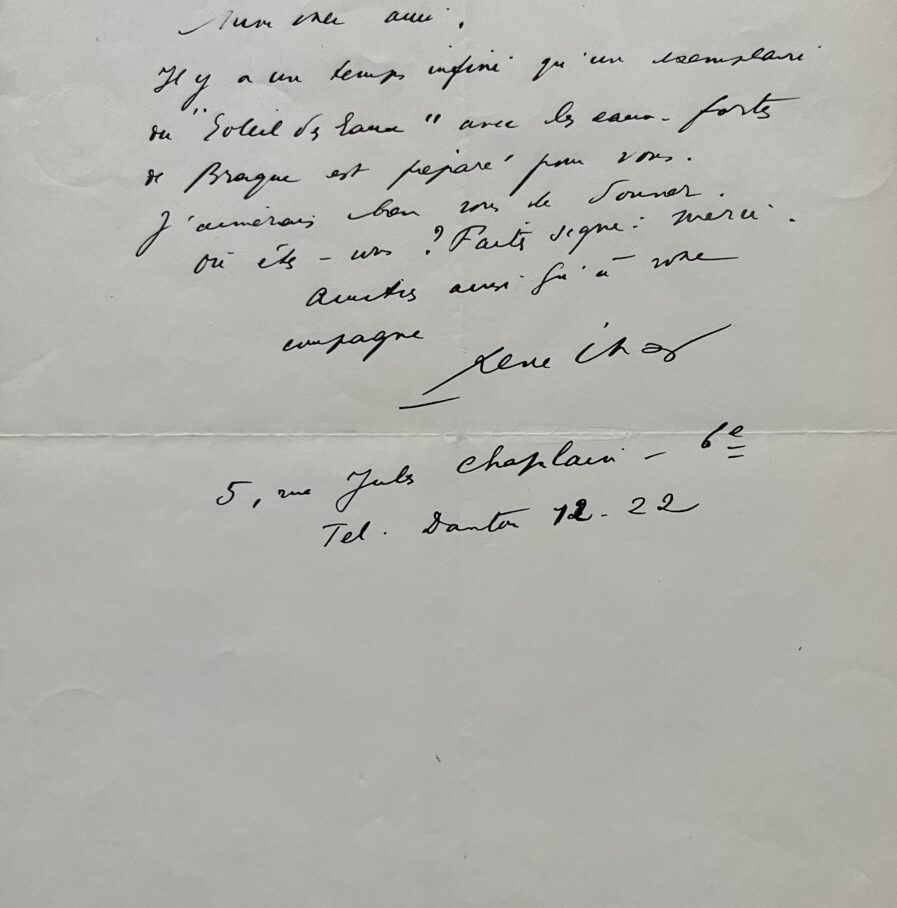 Mon cher ami.
Il y a un temps infini qu'un exemplaire
du "Soleil des Eaux" avec les eaux-fortes
de Braque est préparé pour vous.
J'aimerais bien vous le donner.
Où êtes-vous ? Faites signe : merci.
Amitiés ainsi qu'à votre
compagne
René Char
5, rue Jules Chaplain - 6e
Tel. Danton 12-22